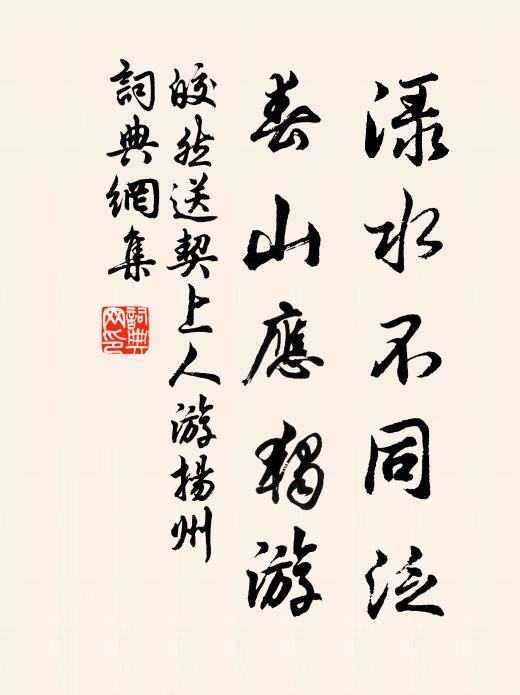 渌水不同泛
春山應獨游
皎然送契上人游揚州
詞典網集
詞典
网印